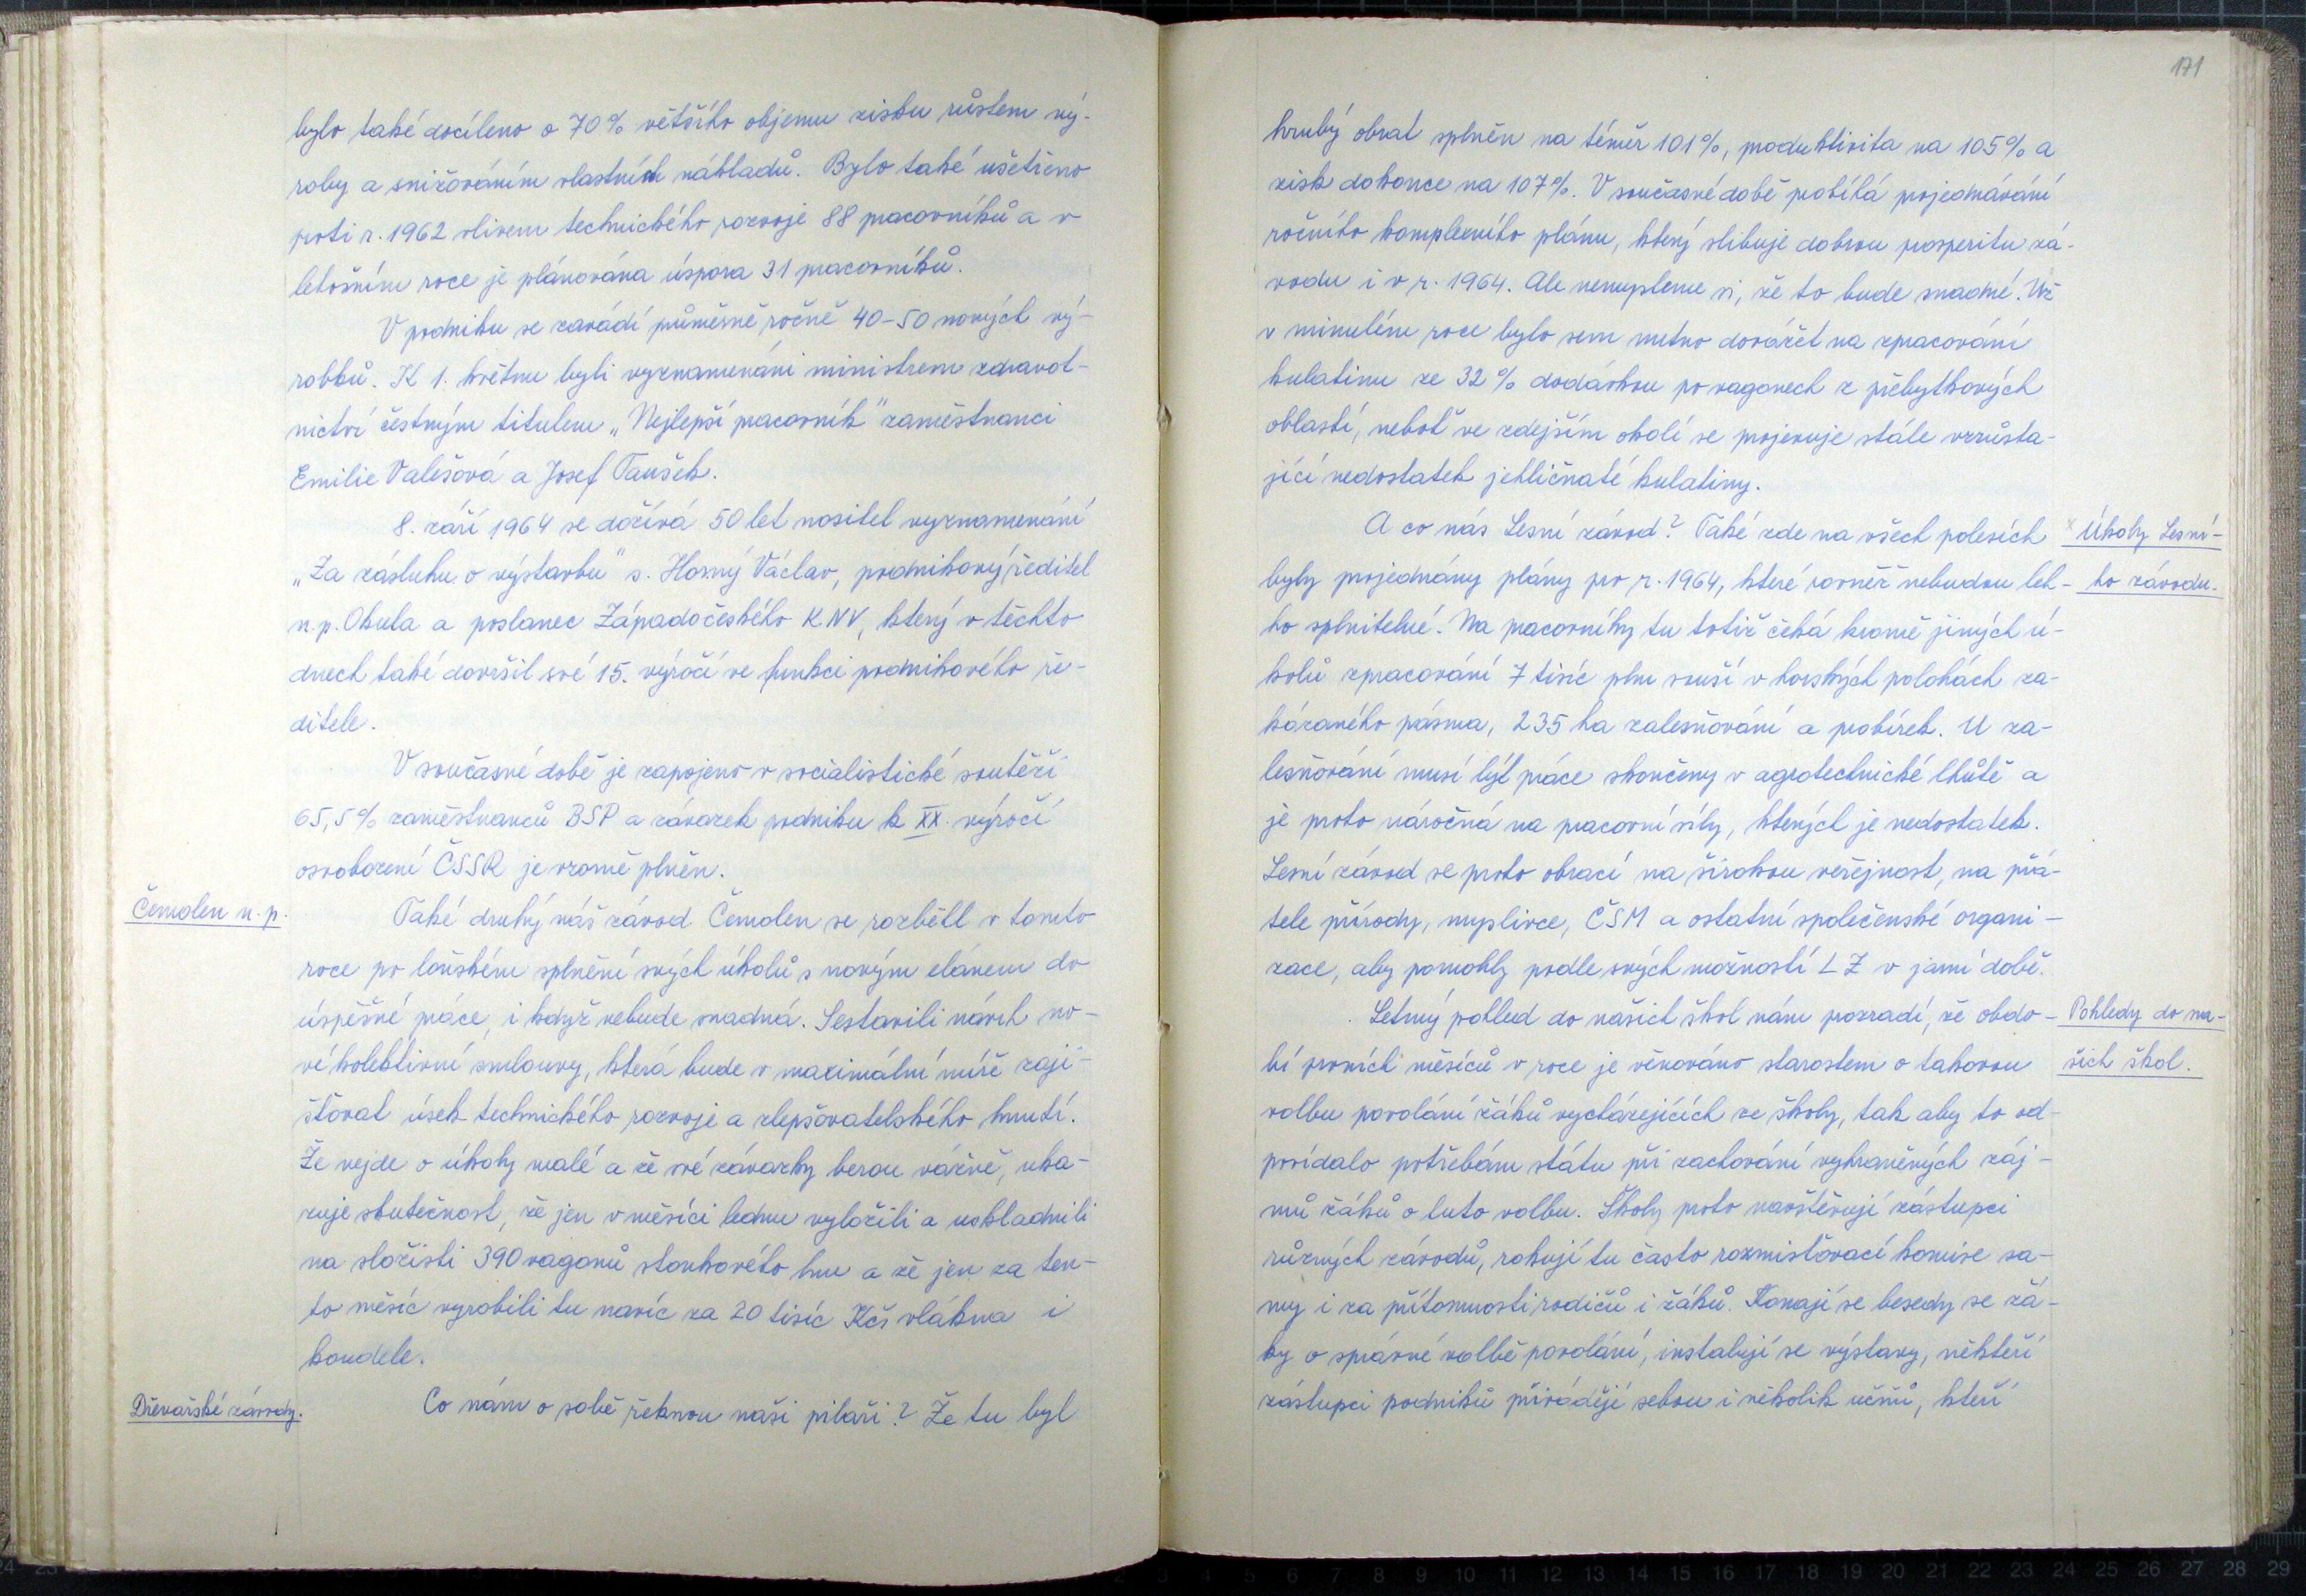 bylo také docíleno o 70% většího objemu zisku růstem vý-
roby a snižováním vlastních nákladů. Bylo také ušetřeno
proti r. 1962 vlivem technického rozvoje 88 pracovníků a v
letošním roce je plánována úspora 31 pracovníků.
V podniku se zavádí průměrně ročně 40-50 nových vý-
robků. K 1. květnu byli vyznamenáni ministrem zdravot-
nictví čestným titulem „Nejlepší pracovník" zaměstnanci
Emilie Valešová a Josef Taušek.
8. září 1964 se dožívá 50 let nositel vyznamenání
„Za zásluhu o výstavbu" s. Horný Václav, podnikový ředitel
n.p. Okula a poslanec Západočeského KNV, který v těchto
dnech také dovršil své 15. výročí ve funkci podnikového ře-
ditele.
V současné době je zapojeno v socialistické soutěži
65,5% zaměstnanců BSP a závazek podniku k XX. výročí
osvobození ČSSR je vzorně plněn.
Čemolen n.p.
Také druhý náš závod Čemolen se rozběhl v tomto
roce po loňském splnění svých úkolů s novým elánem do
úspěšné práce, i když nebude snadná. Sestavili návrh no-
vé kolektivní smlouvy, která bude v maximální míře zaji-
šťovat úsek technického rozvoje a zlepšovatelského hnutí.
Že nejde o úkoly malé a že své závazky berou vážně, uka-
zuje skutečnost, že jen v měsíci lednu vyložili a uskladnili
na složišti 390 vagonů stonkového lnu a že jen za ten-
to měsíc vyrobili tu navíc za 20 tisíc Kčs vlákna i
koudele.
Dřevařské závody.
Co nám o sobě řeknou naši pilaři? Že tu byl
171
hrubý obrat splněn na téměř 101%, produktivita na 105% a
zisk dokonce na 107%. V současné době probíhá projednávání
ročního komplexního plánu, který slibuje dobrou prosperitu zá-
vodu i v r. 1964. Ale nemysleme si, že to bude snadné. Už
v minulém roce bylo sem nutno dovážet na zpracování
kulatinu ze 32% dodávkou po vagonech z přebytkových
oblastí, neboť ve zdejším okolí se projevuje stále vzrůsta-
jící nedostatek jehličnaté kulatiny.
A co náš Lesní závod? Také zde na všech polesích
Úkoly Lesní-
byly projednány plány pro r. 1964, které rovněž nebudou leh-
ho závodu.
ko splnitelné. Na pracovníky tu totiž čeká kromě jiných ú-
kolů zpracování 7 tisíc plm souší v horských polohách za-
kázaného pásma, 235 ha zalesňování a probírek. U za-
lesňování musí být práce skončeny v agrotechnické lhůtě a
je proto náročná na pracovní síly, kterých je nedostatek.
Lesní závod se proto obrací na širokou veřejnost, na přá-
tele přírody, myslivce, ČSM a ostatní společenské organi-
zace, aby pomohly podle svých možností LZ v jarní době.
Letmý pohled do našich škol nám pozradí, že obdo-
Pohledy do na-
bí prvních měsíců v roce je věnováno starostem o takovou
šich škol.
volbu povolání žáků vycházejících ze školy, tak aby to od-
povídalo potřebám státu při zachování vyhraněných záj-
mů žáků o tuto volbu. Školy proto navštěvují zástupci
různých závodů, rokují tu často rozmisťovací komise sa-
my i za přítomnosti rodičů i žáků. Konají se besedy se žá-
ky o správné volbě povolání, instalují se výstavy, někteří
zástupci podniků přivádějí sebou i několik učňů, kteří